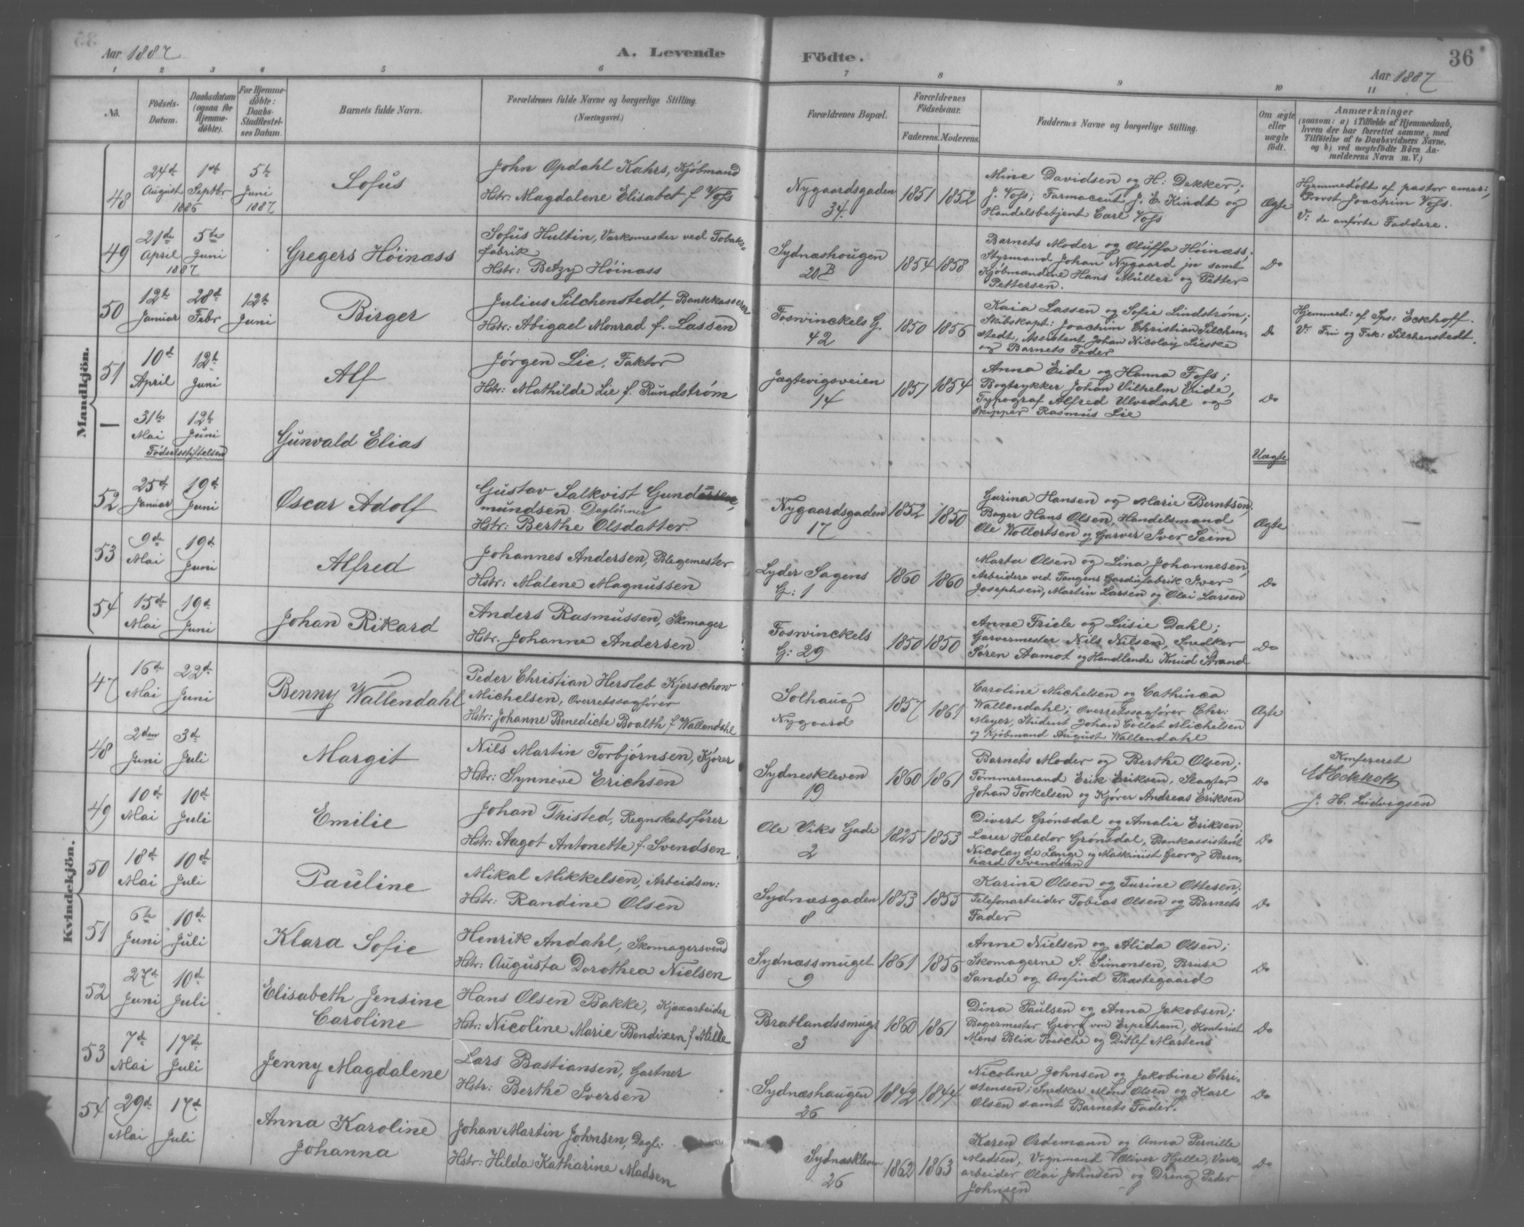 Aar 1887
A. Levende Födte.
36
Aar 1887
1 2 3 4 5 6 7 8 9 10 11
No. Födsels-Datum. Daabsdatum (ogsaa for Hjemmedöbte). For Hjemmedöbte: Daabs-Stadfæstelses Datum. Barnets fulde Navn. Forældrenes fulde Navne og borgerlige Stilling. (Næringsvei.) Forældrenes Bopæl. Forældrenes Födselsaar. Faderens. Moderens. Faddernes Navne og borgerlige Stilling. Om ægte eller uægte födt. Anmærkninger
Mandkjön.
48 24de August 1ste Septbr 1886 5te Juni 1887
Sofus
John Opdahl Kahrs, Kjöbmand
Hstr: Magdalene Elisabet f. Voss
Nygaardsgaden 34
1851 1852
Mine Davidsen og H. Dekker;
J. Voss; Farmaceut J. E. Kindt og
Handelsbetjent Carl Voss
Ægte
Hjemmedöbt af pastor emer:,
Provst Joachim Voss.
V: de anförte Faddere.
49 21de April 5te Juni 1887
Gregers Höinæss
Sofus Hultin, Værksmester ved Tobaksfabrik
Hstr: Betzy Höinass
Sydnæshougen 20B
1854 1858
Barnets Moder og Oluffa Höinæss;
Styrmand Johan Nygaard jr samt
Kjöbmændene Hans Müller og Petter
Pettersen.
Do
50 12te Januar 28de Febr 12te Juni
Birger
Julius Silchenstedt, Bankkasserer
Hstr: Abigael Monrad f. Lassen
Foswinckels G. 42
1850 1856
Kaia Lassen og Sofie Lindstrøm;
Skibskapt: Joachim Christian Silchenstedt, Assistent Johan Nicolay
og Barnets Fader
Do
Hjemmed: af Sps: Eckhoff.
V: Fru og Frk: Silchenstedt.
51 10de April 12te Juni
Alf
Jørgen Lie, Faktor
Hstr: Mathilde Lie f. Rundstrøm
Jægtevigsveien 14
1851 1854
Anna Eide og Hanna Foss;
Bogtrykker Johan Vilhelm Eide,
Typograf Alfred Ulvedahl og
Skipper Rasmus Lie
Do
— 31te Mai 12te Juni
Födselsstiftelsen
Gunvald Elias
Uægte
52 25de Januar 19de Juni
Oscar Adolf
Gustav Salkvist Gundersen
mundsen Daglönner
Hstr: Berthe Olsdatter
Nygaardsgaden 17
1852 1850
Gurina Hansen og Marie Berntson
Bager Hans Olsen, Handelsmand
Ole Wollertsen og Garver Iver Seim
Ægte
53 9de Mai 19de Juni
Alfred
Johannes Andersen, Blegemester
Hstr: Malene Magnussen
Lyder Sagens G: 1
1860 1860
Marta Olsen og Lina Johannesen,
Arbeidere ved Tangens Gardinfabrik Iver
Josephsen, Martin Larsen og Olai Larsen
Do
54 15de Mai 19de Juni
Johan Rikard
Anders Rasmussen, Skomager
Hstr: Johanne Andersen
Foswinckels G: 29
1850 1850
Anne Friele og Lusie Dahl;
Garvermester Nils Nilsen, Snedker
Sören Aamot og Handlende Knud Strand
Do
Kvindekjön.
47 16de Mai 22de Juni
Benny Wallendahl
Peder Christian Hersleb Kjerschow
Michelsen, Overretssagförer
Hstr: Johanne Benedicte Boalth f. Wallendahl
Solhaug Nygaard
1857 1861
Caroline Michelsen og Cathinca
Wallendahl; Overretssagförer Chr:
Meyer, Student Johan Collet Michelsen
og Kjöbmand August Wallendahl
Ægte
48 2den Juni 3de Juli
Margit
Nils Martin Torbjørnsen, Kjörer
Hstr: Synneve Erichsen
Sydneskleven 19
1860 1861
Barnets Moder og Berthe Olsen;
Tömmermand Erik Eriksen, Slagter
Johan Torkelsen og Kjörer Andreas Eriksen
Do
Konfereret
Eckhoff
J. H. Ludvigsen
49 10de Mai 10de Juli
Emilie
Johan Thisted, Regnskabsförer
Hstr: Aagot Antonette f. Svendsen
Ole Viks Gade 2
1825 1853
Divert Grönsdal og Amalie Eriksen,
Lærer Haldor Grönsdal, Bankassistent
Nicolay de Lange og Maskinist Georg Bernhard Svendsen
Do
50 18de Mai 10de Juli
Pauline
Mikal Mikkelsen, Arbeidsm:
Hstr: Randine Olsen
Sydnæsgaden 8
1853 1855
Karine Olsen og Turine Ottesen;
Telefonarbeider Tobias Olsen og Barnets
Fader
Do
51 6te Juni 10de Juli
Klara Sofie
Henrik Andahl, Skomagersvend
Hstr: Augusta Dorothea Nielsen
Sydnæssmuget 9
1861 1856
Anne Nielsen og Alida Olsen;
Skomagerne S. Simonsen, Bruse
Sande og Anfind Præstegaard
Do
52 27de Juni 10de Juli
Elisabeth Jensine
Caroline
Hans Olsen Bakke, Kjæxarbeider
Hstr: Nicoline Marie Bendixen f. Mille
Bratlandssmug: 3
1860 1861
Dina Paulsen og Anna Jakobsen;
Bagermester Georg von Erpecom, Kontorist
Mons Blix Büsche og Ditlef Martens
Do
53 7de Mai 17de Juli
Jenny Magdalene
Lars Bastiansen, Gartner
Hstr: Berthe Iversen
Sydnæshaugen 26
1842 1844
Nicoline Johnsen og Jakobine Christensen; Snedker Mons Olsen og Karl
Olsen samt Barnets Fader.
Do
54 29de Mai 17de Juli
Anna Karoline
Johanna
Johan Martin Johnsen, Dagl:
Hstr: Hilda Katharine Madsen
Sydnæskleven 26
1862 1863
Karen Ordemann og Anna Pernille
Madsen, Vognmand Oliver Hjelle, Værkarbeider Olai Johnsen og Dreng Peder
Johnsen
Do